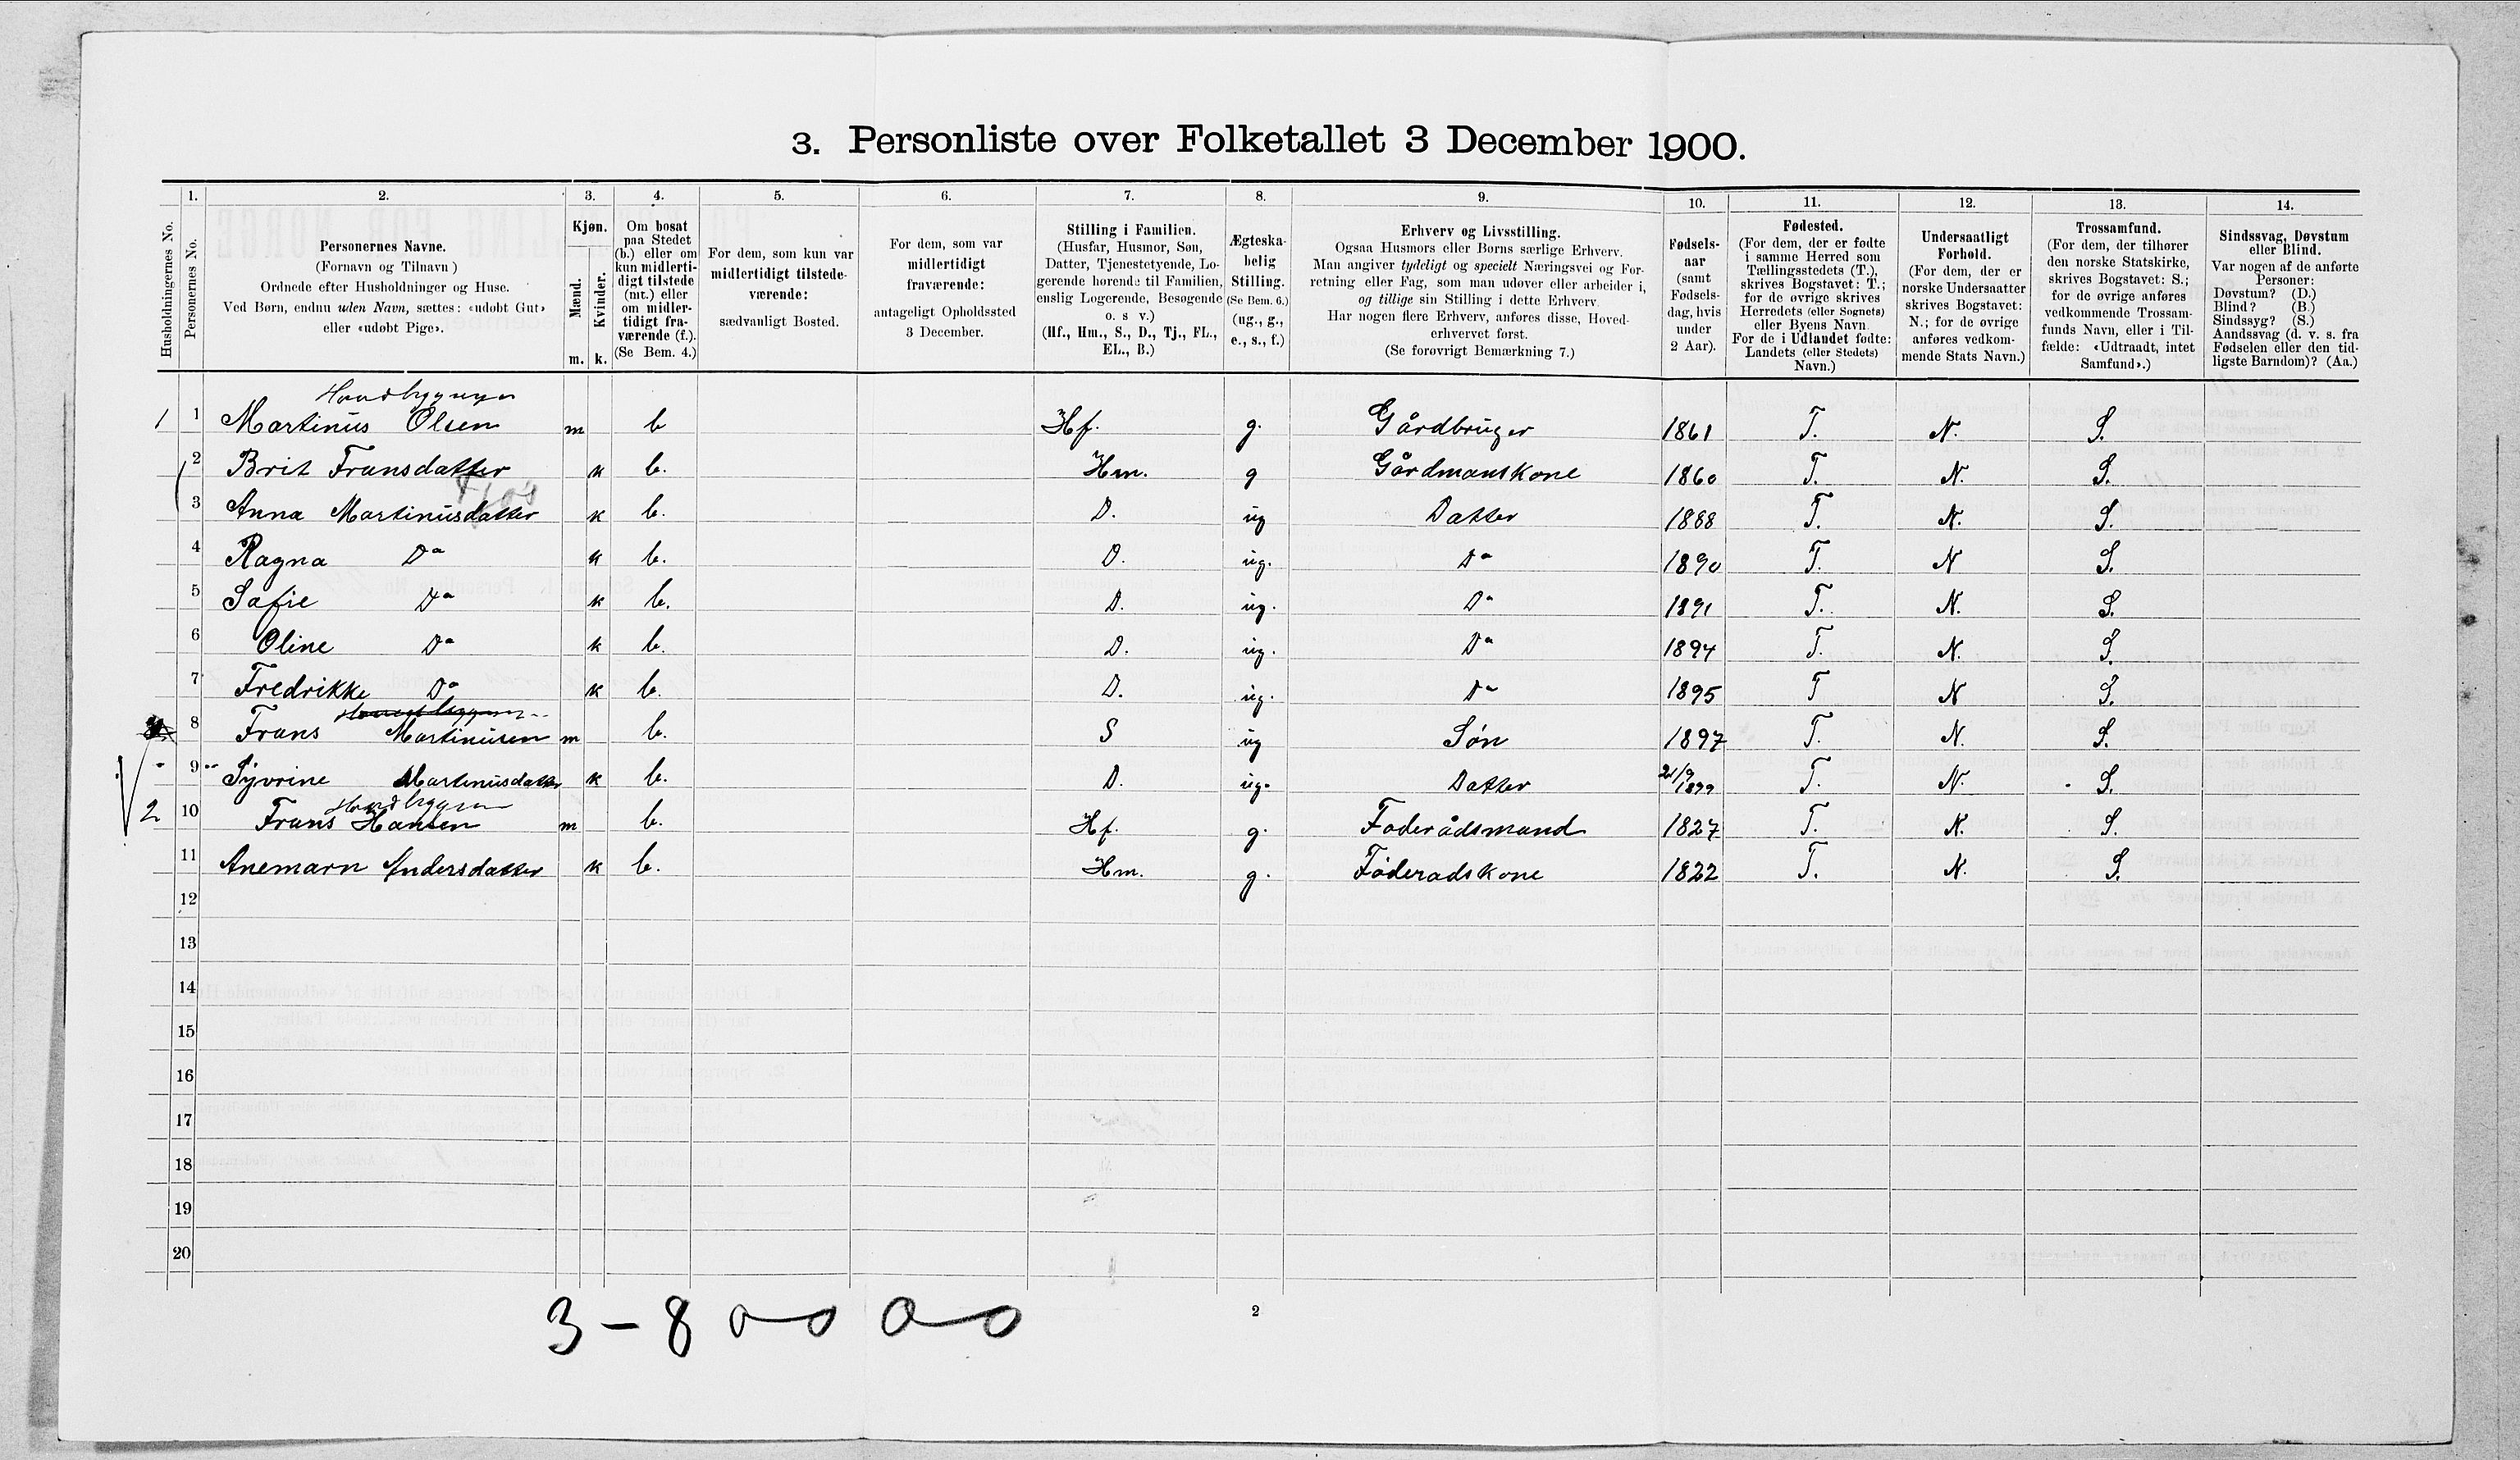 3. Personliste over Folketallet 3 December 1900.
1. 2. 3. 4. 5. 6. 7. 8. 9. 10. 11. 12. 13. 14.
Husholdningernes No.
Personernes No.
Personernes Navne.
(Fornavn og Tilnavn )
Ordnede efter Husholdninger og Huse.
Ved Børn, endnu uden Navn, sættes: «udøbt Gut»
eller «udøbt Pige».
Kjøn.
Mænd.
Kvinder.
m. k.
Om bosat
paa Stedet
(b.) eller om
kun midlerti-
digt tilstede
(mt.) eller
om midler-
tidigt fra-
værende (f.).
(Se Bem. 4.)
For dem, som kun var
midlertidigt tilstede-
værende:
sædvanligt Bosted.
For dem, som var
midlertidigt
fraværende:
antageligt Opholdssted
3 December.
Stilling i Familien.
(Husfar, Husmor, Søn,
Datter, Tjenestetyende, Lo-
gerende hørende til Familien,
enslig Logerende, Besøgende
o. s v.)
(Hf., Hm., S., D., Tj., FL.,
EL., B.)
Ægteska-
belig
Stilling.
(Se Bem. 6.)
(ug., g.,
e., s., f.)
Erhverv og Livsstilling.
Ogsaa Husmors eller Børns særlige Erhverv.
Man angiver tydeligt og specielt Næringsvei og For-
retning eller Fag, som man udøver eller arbeider i,
og tillige sin Stilling i dette Erhverv.
Har nogen flere Erhverv, anføres disse, Hoved-
erhvervet først.
(Se forøvrigt Bemærkning 7.)
Fødsels-
aar
(samt
Fødsels-
dag, hvis
under
2 Aar).
Fødested.
(For dem, der er fødte
i samme Herred som
Tællingsstedets (T.),
skrives Bogstavet: T.;
for de øvrige skrives
Herredets (eller Sognets)
eller Byens Navn.
For de i Udlandet fødte:
Landets (eller Stedets)
Navn.)
Undersaatligt
Forhold.
(For dem, der er
norske Undersaatter
skrives Bogstavet:
N.; for de øvrige
anføres vedkom-
mende Stats Navn.)
Trossamfund.
(For dem, der tilhører
den norske Statskirke,
skrives Bogstavet: S.;
for de øvrige anføres
vedkommende Trossam-
funds Navn, eller i Til-
fælde: «Udtraadt, intet
Samfund».)
Sindssvag, Døvstum
eller Blind.
Var nogen af de anførte
Personer:
Døvstum? (D.)
Blind? (B.)
Sindssyg? (S.)
Aandssvag (d. v. s. fra
Fødselen eller den tid-
ligste Barndom)? (Aa.)
1 1 Martinus Olsen m b Hf. g. Gårdbruger 1861 T. N. S.
2 Brit Fransdatter k b. Hm. g Gårdmanskone 1860 T. N. S.
3 Anna Martinusdatter k b. D. ug Datter 1888 T. N. S.
4 Ragna Do k b. D. ug. Do 1890 T. N S.
5 Safie Do k b. D. ug. Do 1891 T. N. S.
6 Oline Do k b. D. ug. Do 1894 T. N. S.
7 Fredrikke Do k b. D. ug. Do 1895 T N S.
8 Frans Martinusen m b. S ug Søn 1897 T. N. S.
9 Syvrine Martinusdatter k b. D. ug. Datter 21/9 1899 T. N. S.
2 10 Frans Hansen m b. Hf. g. Foderådsmand 1827 T. N. S.
11 Anemarn Andersdatter k b. Hm. g. Føderadskone 1822 T. N. S.
12
13
14
15
16
17
18
19
20
3-8 0-0 0-0
2